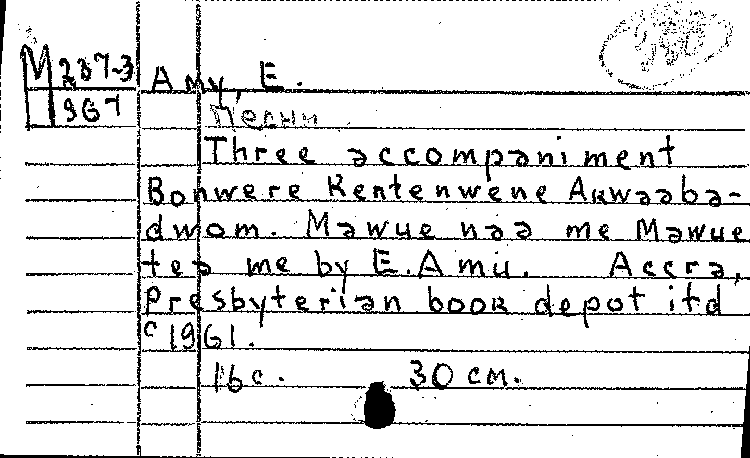 М 237-3
967
Amy, E.
Песни
Three accompaniment
Bonwere Kentenwene Akwaaba-
dwom. Mawue naa me Mawue
tea me by E. Amu. Accra,
Presbyterian book depot itd
c 1961.
16 c. 30 см.